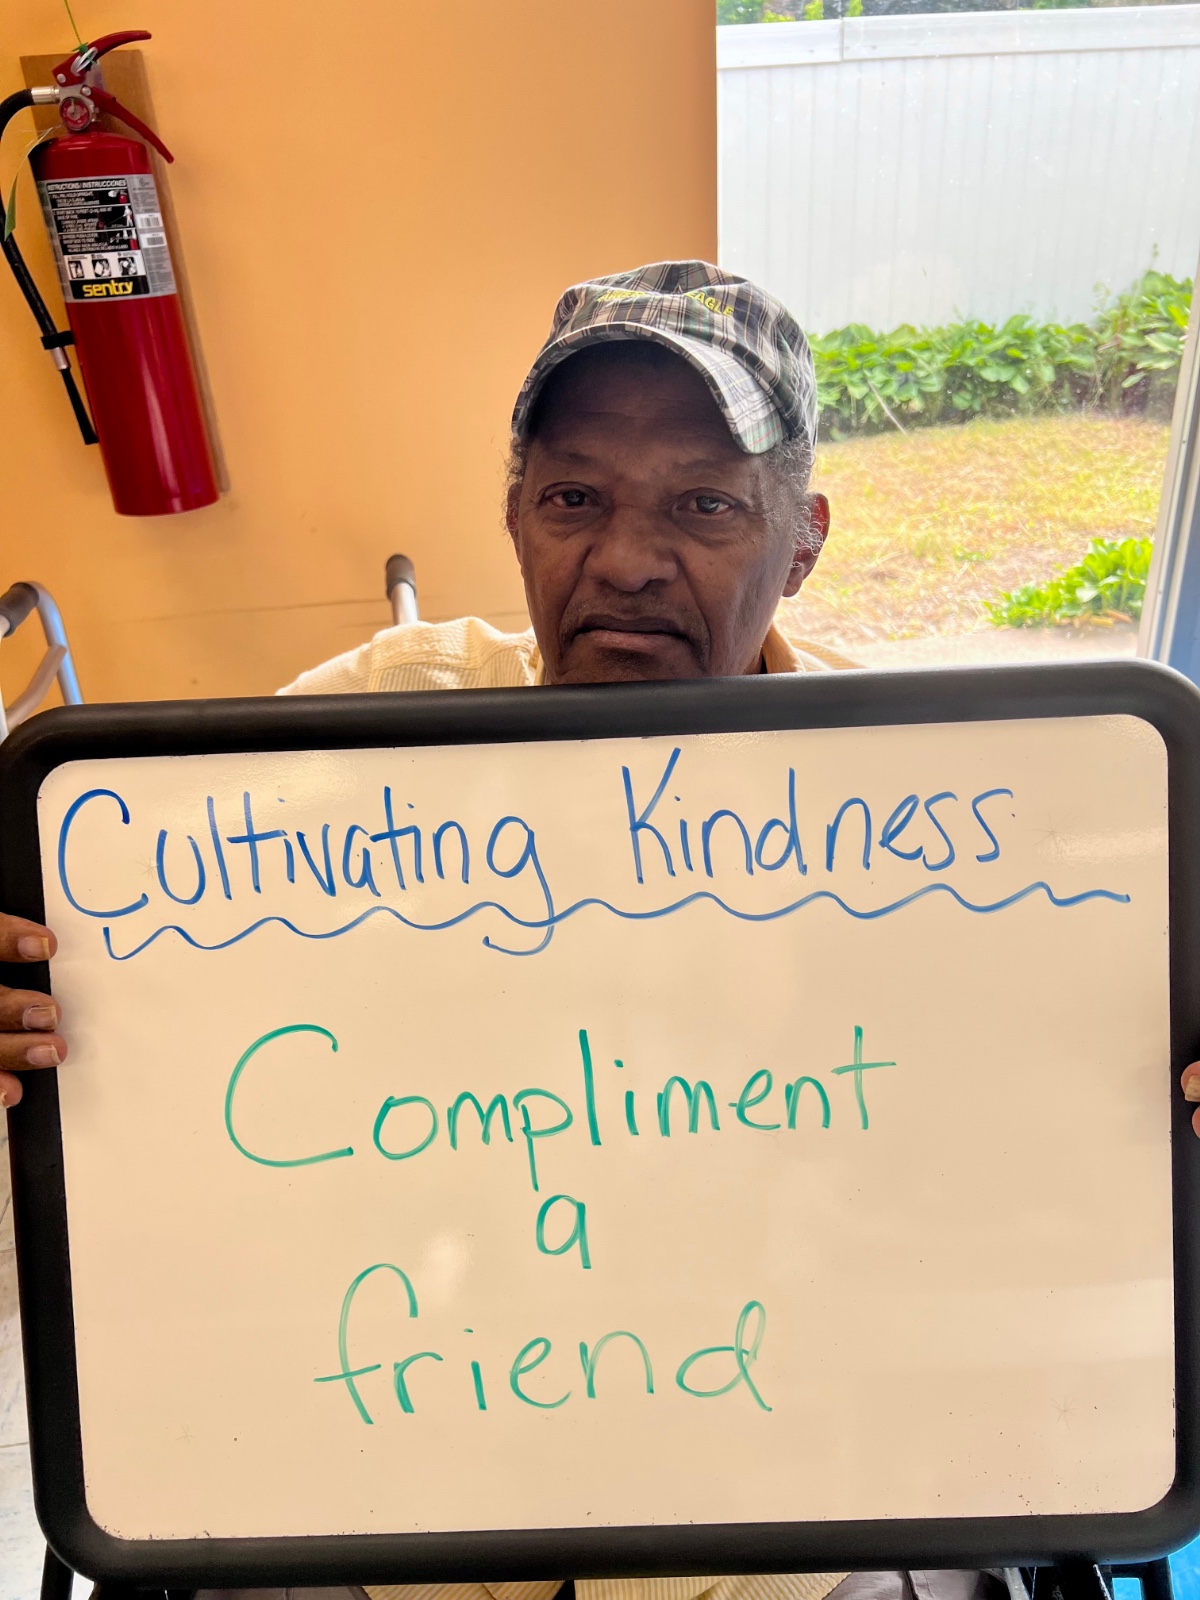 INSTRUCTIONS/INSTRUCCIONES
sentry
EAGLE
Cultivating Kindness
Compliment
a
friend